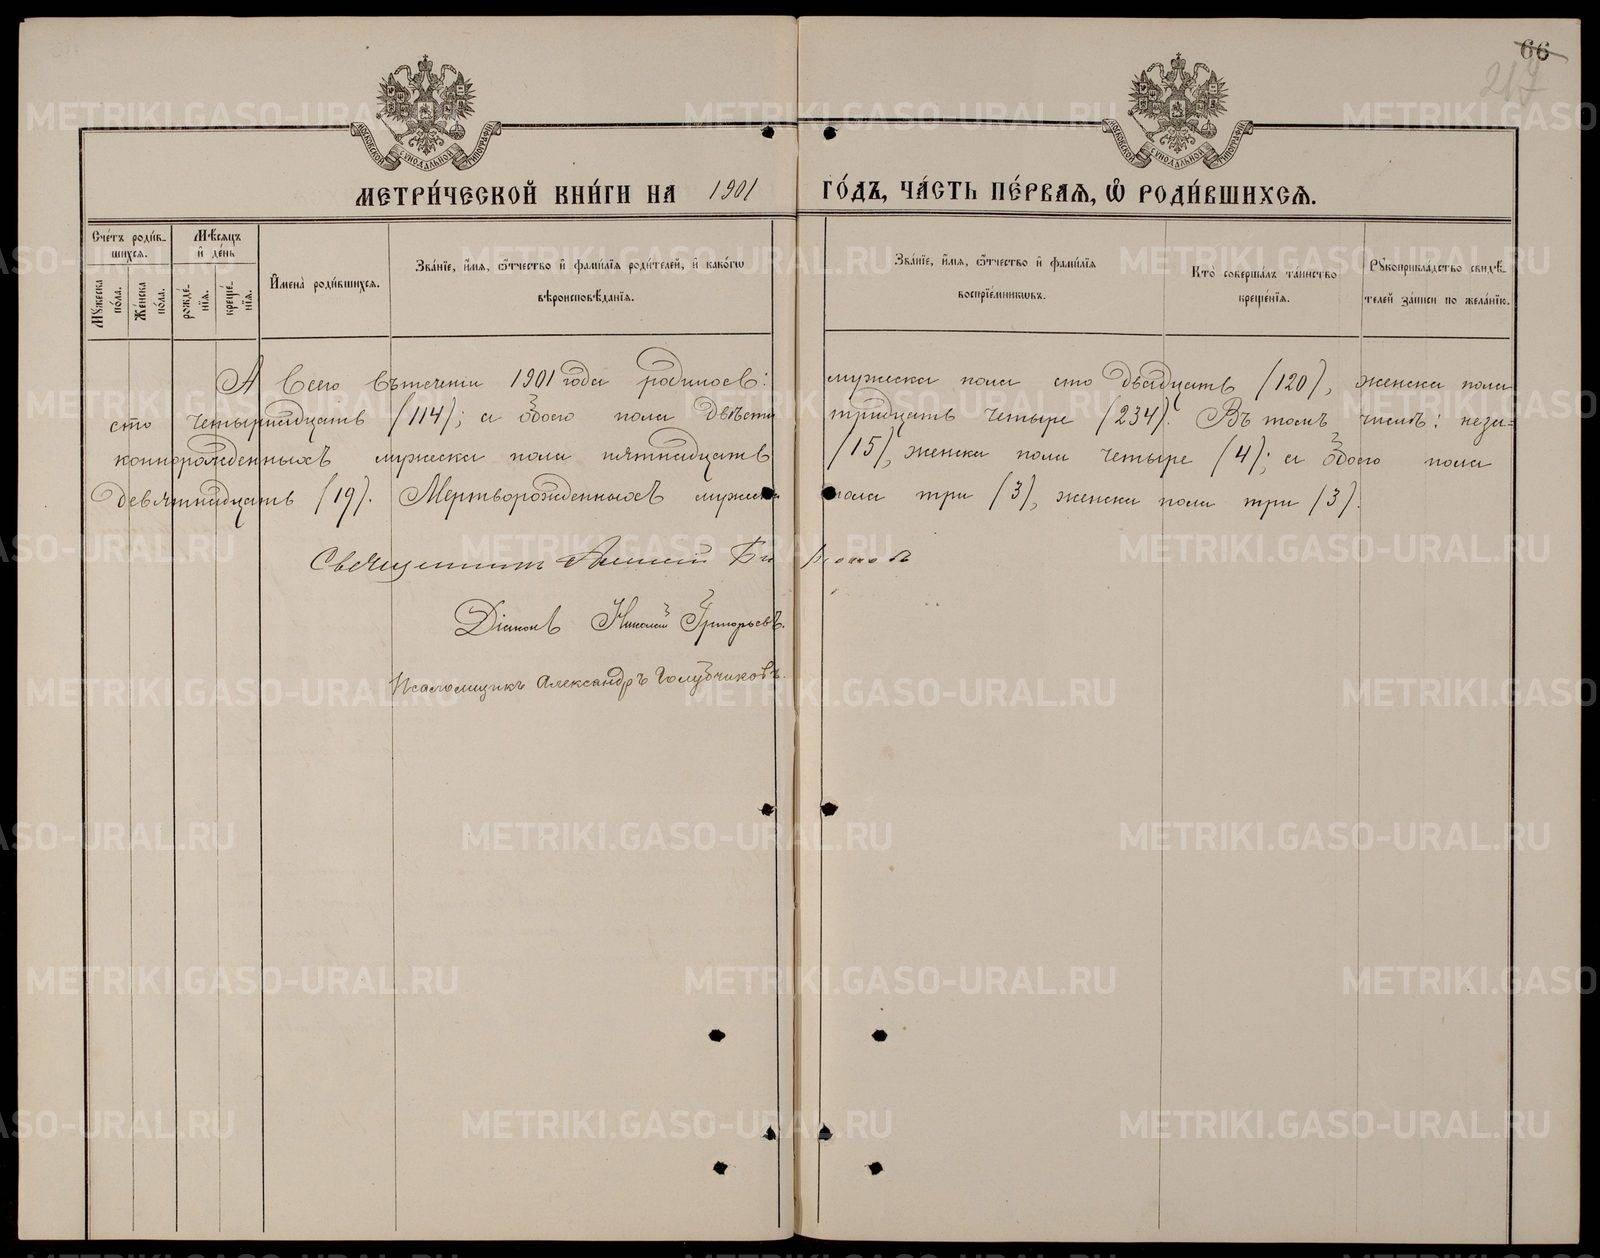 66
217
МОСКОВСКОЙ СѴНОДАЛЬНОЙ ТИПОГРАФІИ
МОСКОВСКОЙ СѴНОДАЛЬНОЙ ТИПОГРАФІИ
МЕТРИ́ЧЕСКОЙ КНИ́ГИ НА 1901 ГО́ДЪ, ЧА́СТЬ ПЕ́РВАЯ, Ѽ РОДИ́ВШИХСЯ.
Сче́тъ роди́в-
шихся.
Мꙋжеска по́ла.
Же́нска по́ла.
Мѣ́сяцъ и҆ де́нь
рожде́-нїя.
креще́-нїя.
И҆мена̀ роди́вшихся.
Зва́нїе, и҆́мя, ѻ҆́тчество и҆ фами́лїя роди́телей, и҆ како́гѡ
вѣроисповѣ́данїя.
Зва́нїе, и҆́мя, ѻ҆́тчество и҆ фами́лїя
воспрїе́мникѡвъ.
Кто̀ соверша́лъ та́инство
креще́нїя.
Рꙋкоприкла́дство свидѣ́-
телей за́писи по жела́нїю.
А всего въ теченіи 1901 года родилось: мужеска пола сто двадцать (120), женска пола
сто четырнадцать (114); а обоего пола двѣсти тридцать четыре (234). Въ томъ числѣ: неза=
коннорожденныхъ мужеска пола пятнадцать (15), женска пола четыре (4); а обоего пола
девятнадцать (19). Мертворожденныхъ мужеска пола три (3), женска пола три (3).
Священникъ
Діаконъ Николай Григорьевъ.
Псаломщикъ Александръ Голубчиковъ.